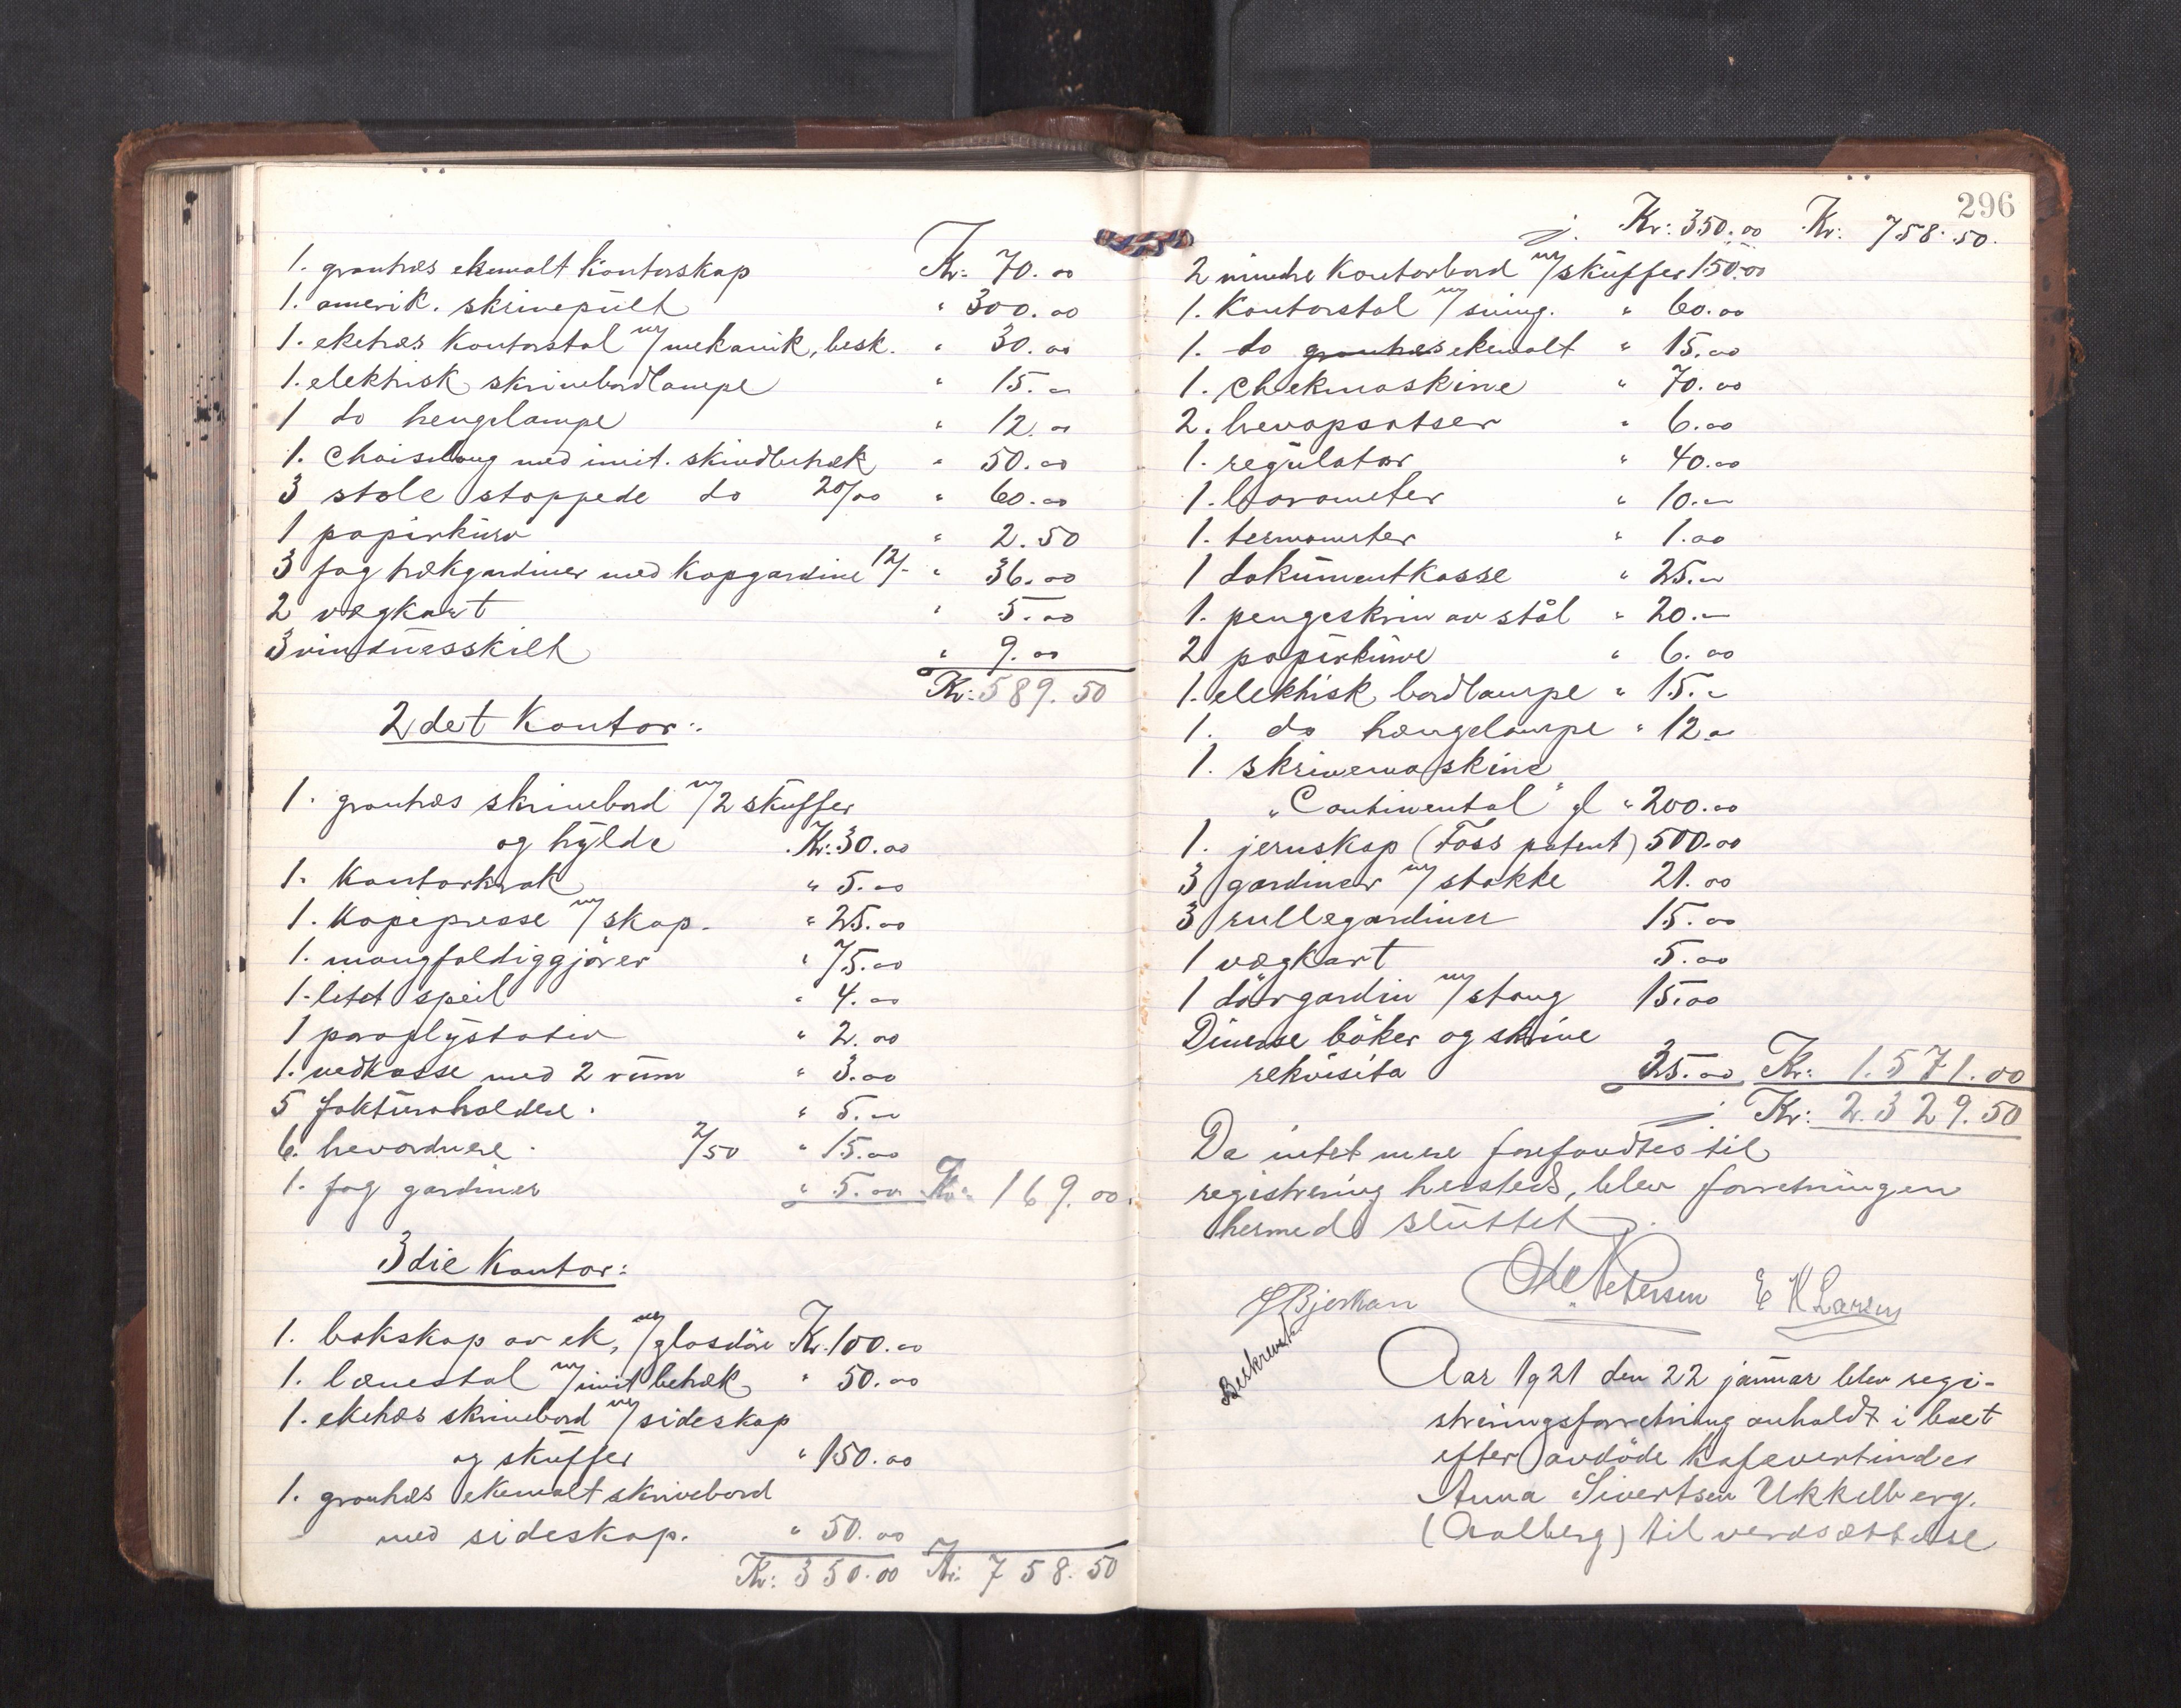 1. grantræs ekemalt Kontorskap Kr: 70.00
1. amerik. skrivepült " 300.00
1. eketræs Kontorstol m/ mekanik, besk. " 30.00
1. elektrisk skrivebordlampe " 15.00
1 do hengelampe " 12.00
1. Chaiselong med imit. skindbetræk " 50.00
3 stole stoppede do 20/00 " 60.00
1 papirkürv " 2.50
3 fag trækgardiner med kapgardine 12/- " 36.00
2 vægkart " 5.00
3 vindüesskilt " 9.00
Kr: 589.50
2det Kontor:
1. grantræs skrivebord m/ 2 sküffer
og hylde Kr: 30.00
1. Kontorkrak " 5.00
1. Kopipresse m/ skap. " 25.00
1. mangfoldiggjører " 75.00
1. litet speil " 4.00
1 paraplystativ " 2.00
1. vedkasse med 2 rüm " 3.00
5 faktüraholdere. " 5.00
6. brevordnere. 2/50 " 15.00
1. fag gardiner " 5.00 Kr: 169.00.
3die Kontor:
1. bokskap av ek, m/ glasdöre Kr. 100.00
1. lænestol m/ imit betræk " 50.00
1. eketræs skrivebord m/ sideskap
og sküffer " 150.00
1. grantræs ekemalt skrivebord
med sideskap. " 50.00
Kr: 350.00 Kr: 758.50
296
Kr: 350.00 Kr: 758.50.
2 mindre Kontorbord m/ sküffer 150.00
1. Kontorstol m/ sving. " 60.00
1. do grantræs ekemalt " 15.00
1. Chekmaskine " 70.00
2. brevopsatser " 6.00
1. regülator " 40.00
1. barometer " 10.00
1. termometer " 1.00
1 dokümentkasse " 25.00
1. pengeskrin av stål " 20.00
2 papirkürve " 6.00
1. elektrisk bordlampe " 15.00
1. do hængelampe " 12.00
1. skrivemaskine
"Continental" gl " 200.00
1. jernskap (Foss patent) 500.00
3 gardiner m/ stokke 21.00
3 rullegardiner 15.00
1 vægkart 5.00
1 dörgardin m/ stang 15.00
Diverse böker og skrive
rekvisita 35.00 Kr: 1.571.00
Kr: 2.329.50
Da intet mere forefandtes til
registrering hersteds, blev forretningen
hermed slüttet.
Bjerkan Petersen E K Larsen
Beskrevet
Aar 1921 den 22 janüar blev regi-
streringsforretning anholdt i boet
efter avdöde kafevertinde
Anna Sivertsen Ukkelberg.
(Aalberg) til verdsættelse